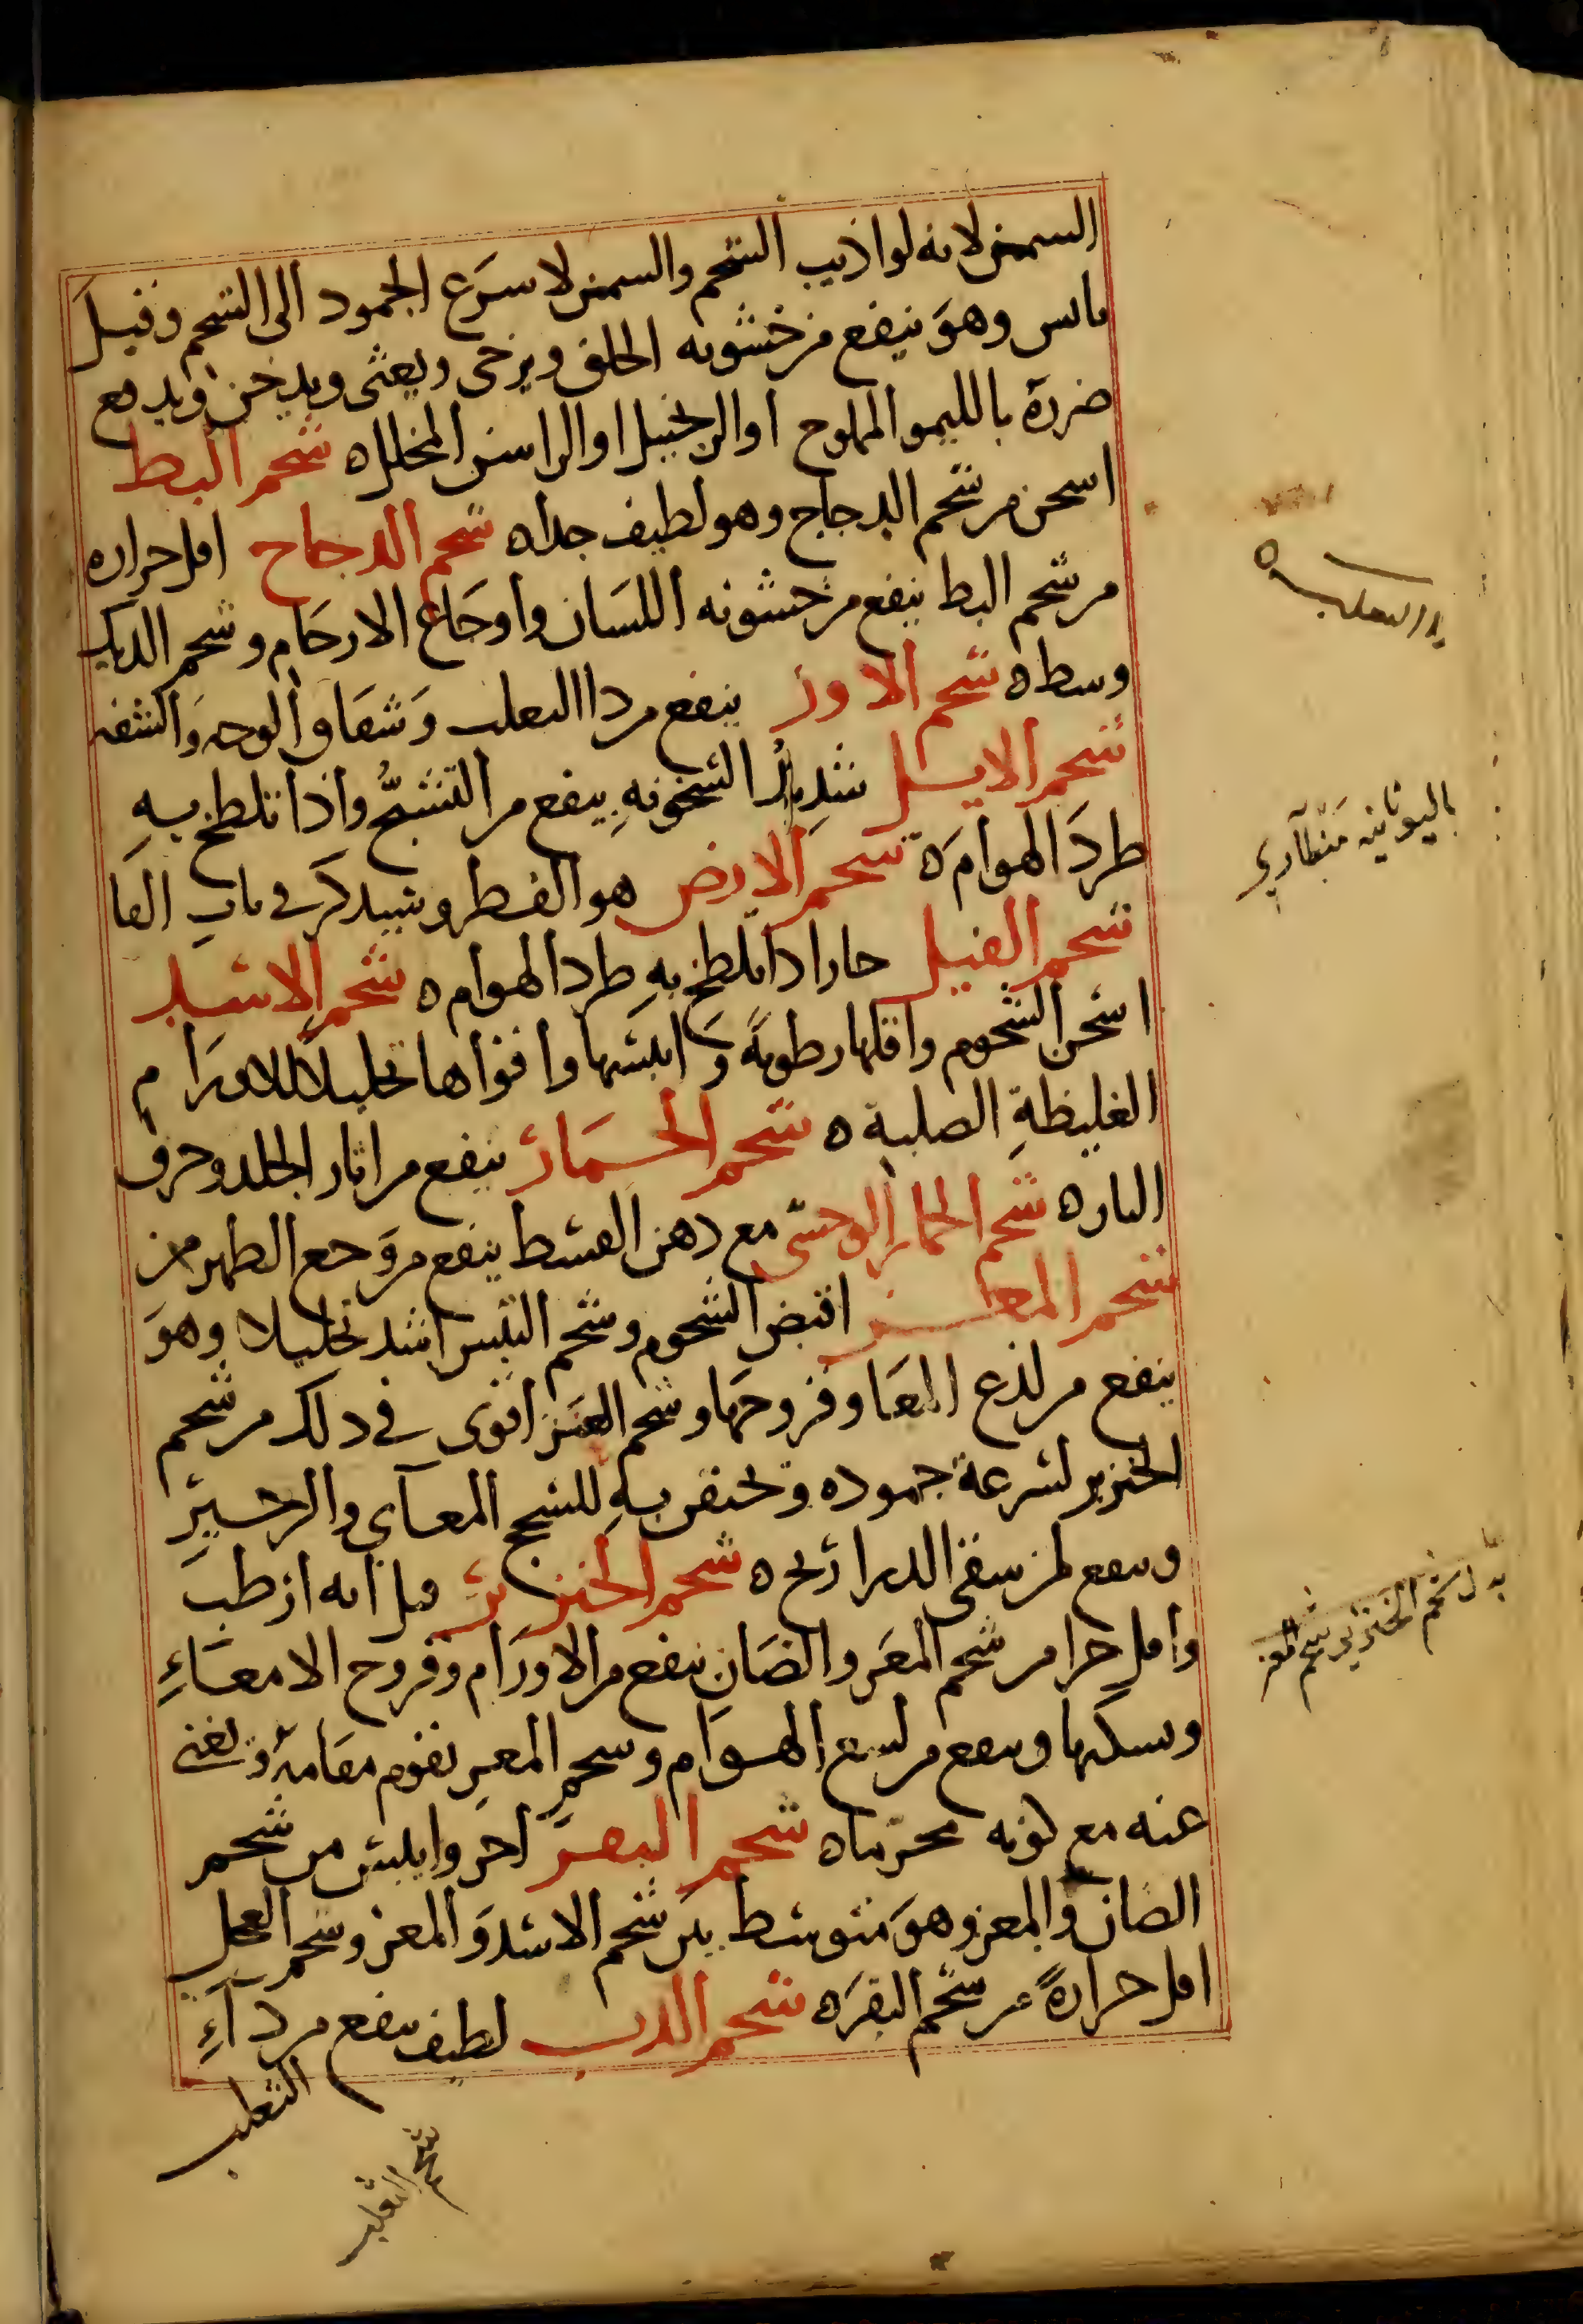 السمن لانه لو اذيب الشحم والسمن لاسرع الجمود الى الشحم وقيل
يابس وهو ينفع من خشونه الحلق ويرخى ويغثى ويدخن ويدفع
ضرره بالليمو المملوح او الزنجبيل او الراسن المخلل ه شحم البط
اسخن من شحم الدجاج وهو لطيف جدا ه شحم الدجاج اقل حراره
من شحم البط ينفع من خشونه اللسان واوجاع الارحام وشحم الديك
وسط ه شحم الاوز ينفع من دا الثعلب وشقاق الوجه والشفه
شحم الايل شديد السخونه ينفع من التشنج واذا تلطخ به
طرد الهوام ه شحم الارض هو الفطر وسيذكر فى باب الفا
شحم الفيل حار اذا تلطخ به طرد الهوام ه شحم الاسد
اسخن الشحوم واقلها رطوبة وايبسها واقواها تحليلا للاورام
الغليظة الصلبة ه شحم الحمار ينفع من اثار الجلد وحرق
النار ه شحم الحمار الوحشى مع دهن القسط ينفع من وجع الظهر من
شحم المعز اقبض الشحوم وشحم التيس اشد تحليلا وهو
ينفع من لذع المعا وقروحها وشحم العنز اقوى فى ذلك من شحم
الخنزير لسرعة جموده وتحتقن به للسحج المعآى والزحير
وينفع لمن سقى الدراريح ه شحم الخنزير قيل انه ارطب
واقل حرا من شحم المعز والضان ينفع من الاورام وقروح الامعاء
ويسكنها وينفع من لسع الهوام وشحم المعز يقوم مقامه ويغنى
عنه مع كونه محرما ه شحم البقر احر وايبس من شحم
الضان والمعز وهو متوسط بين شحم الاسد والمعز وشحم العجل
اقل حرارة من شحم البقر ه شحم الدب لطيف ينفع من داء
الثعلب
شحم الثعلب
الثعلب ه
باليونانيه
بدل شحم الخنزير شحم المعز